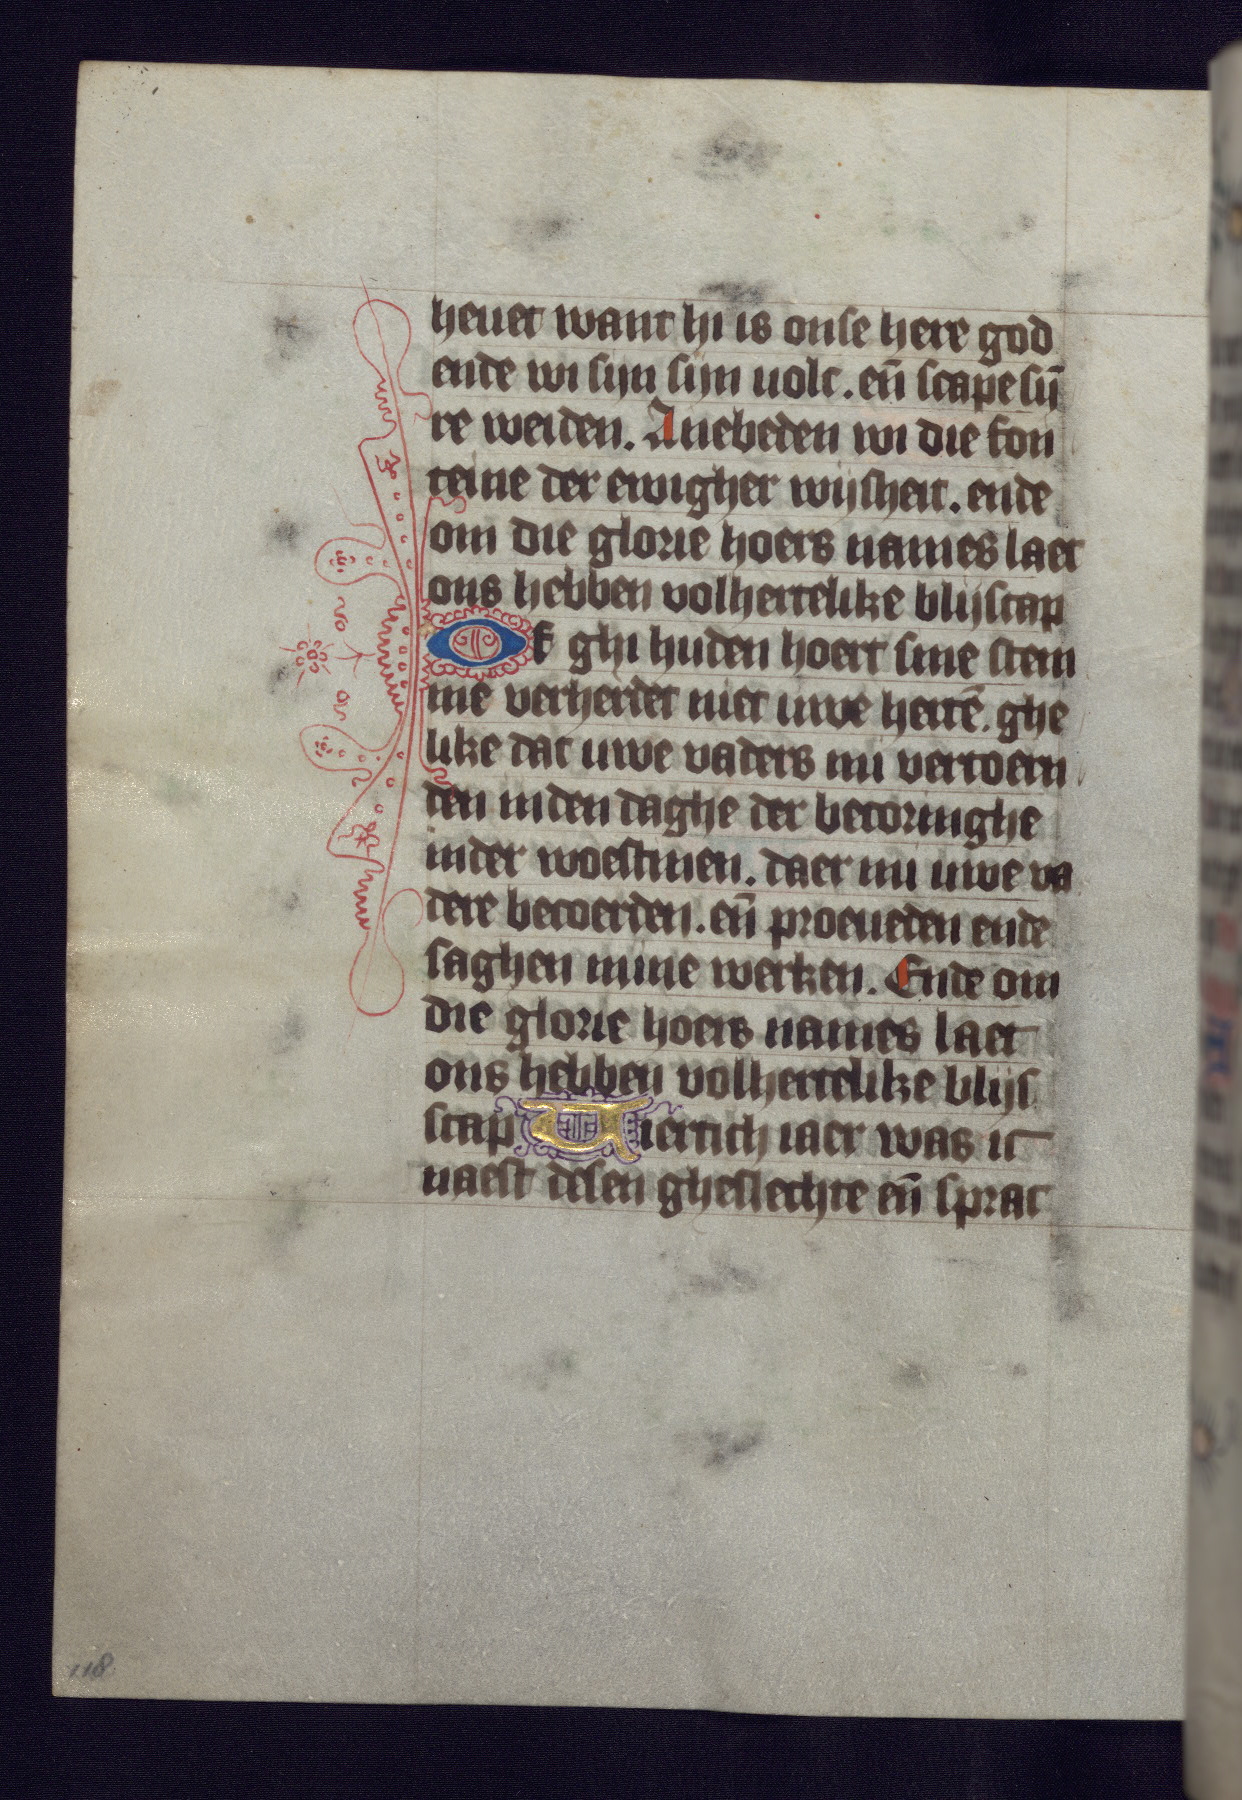 heuet want hi is onse here god
ende wi sijn sijn uolc. en̄ scape sij̄
re weiden. Anebeden wi die fon
teine der ewigher wijsheit. ende
om die glorie hoers names laet
ons hebben volhertelike blijscap
Of ghi huden hoert sine stem
me verherdet niet uwe hertē. ghe
like dat uwe vaders mi vertoern
den inden daghe der becoringhe
inder woestinen. daer mi uwe va
dere becoerden. en̄ proeueden ende
saghen mine werken. Ende om
die glorie hoers names laet
ons hebben volhertelike blijs
scap Viertich iaer was ic
naest desen gheslechte en̄ sprac
118